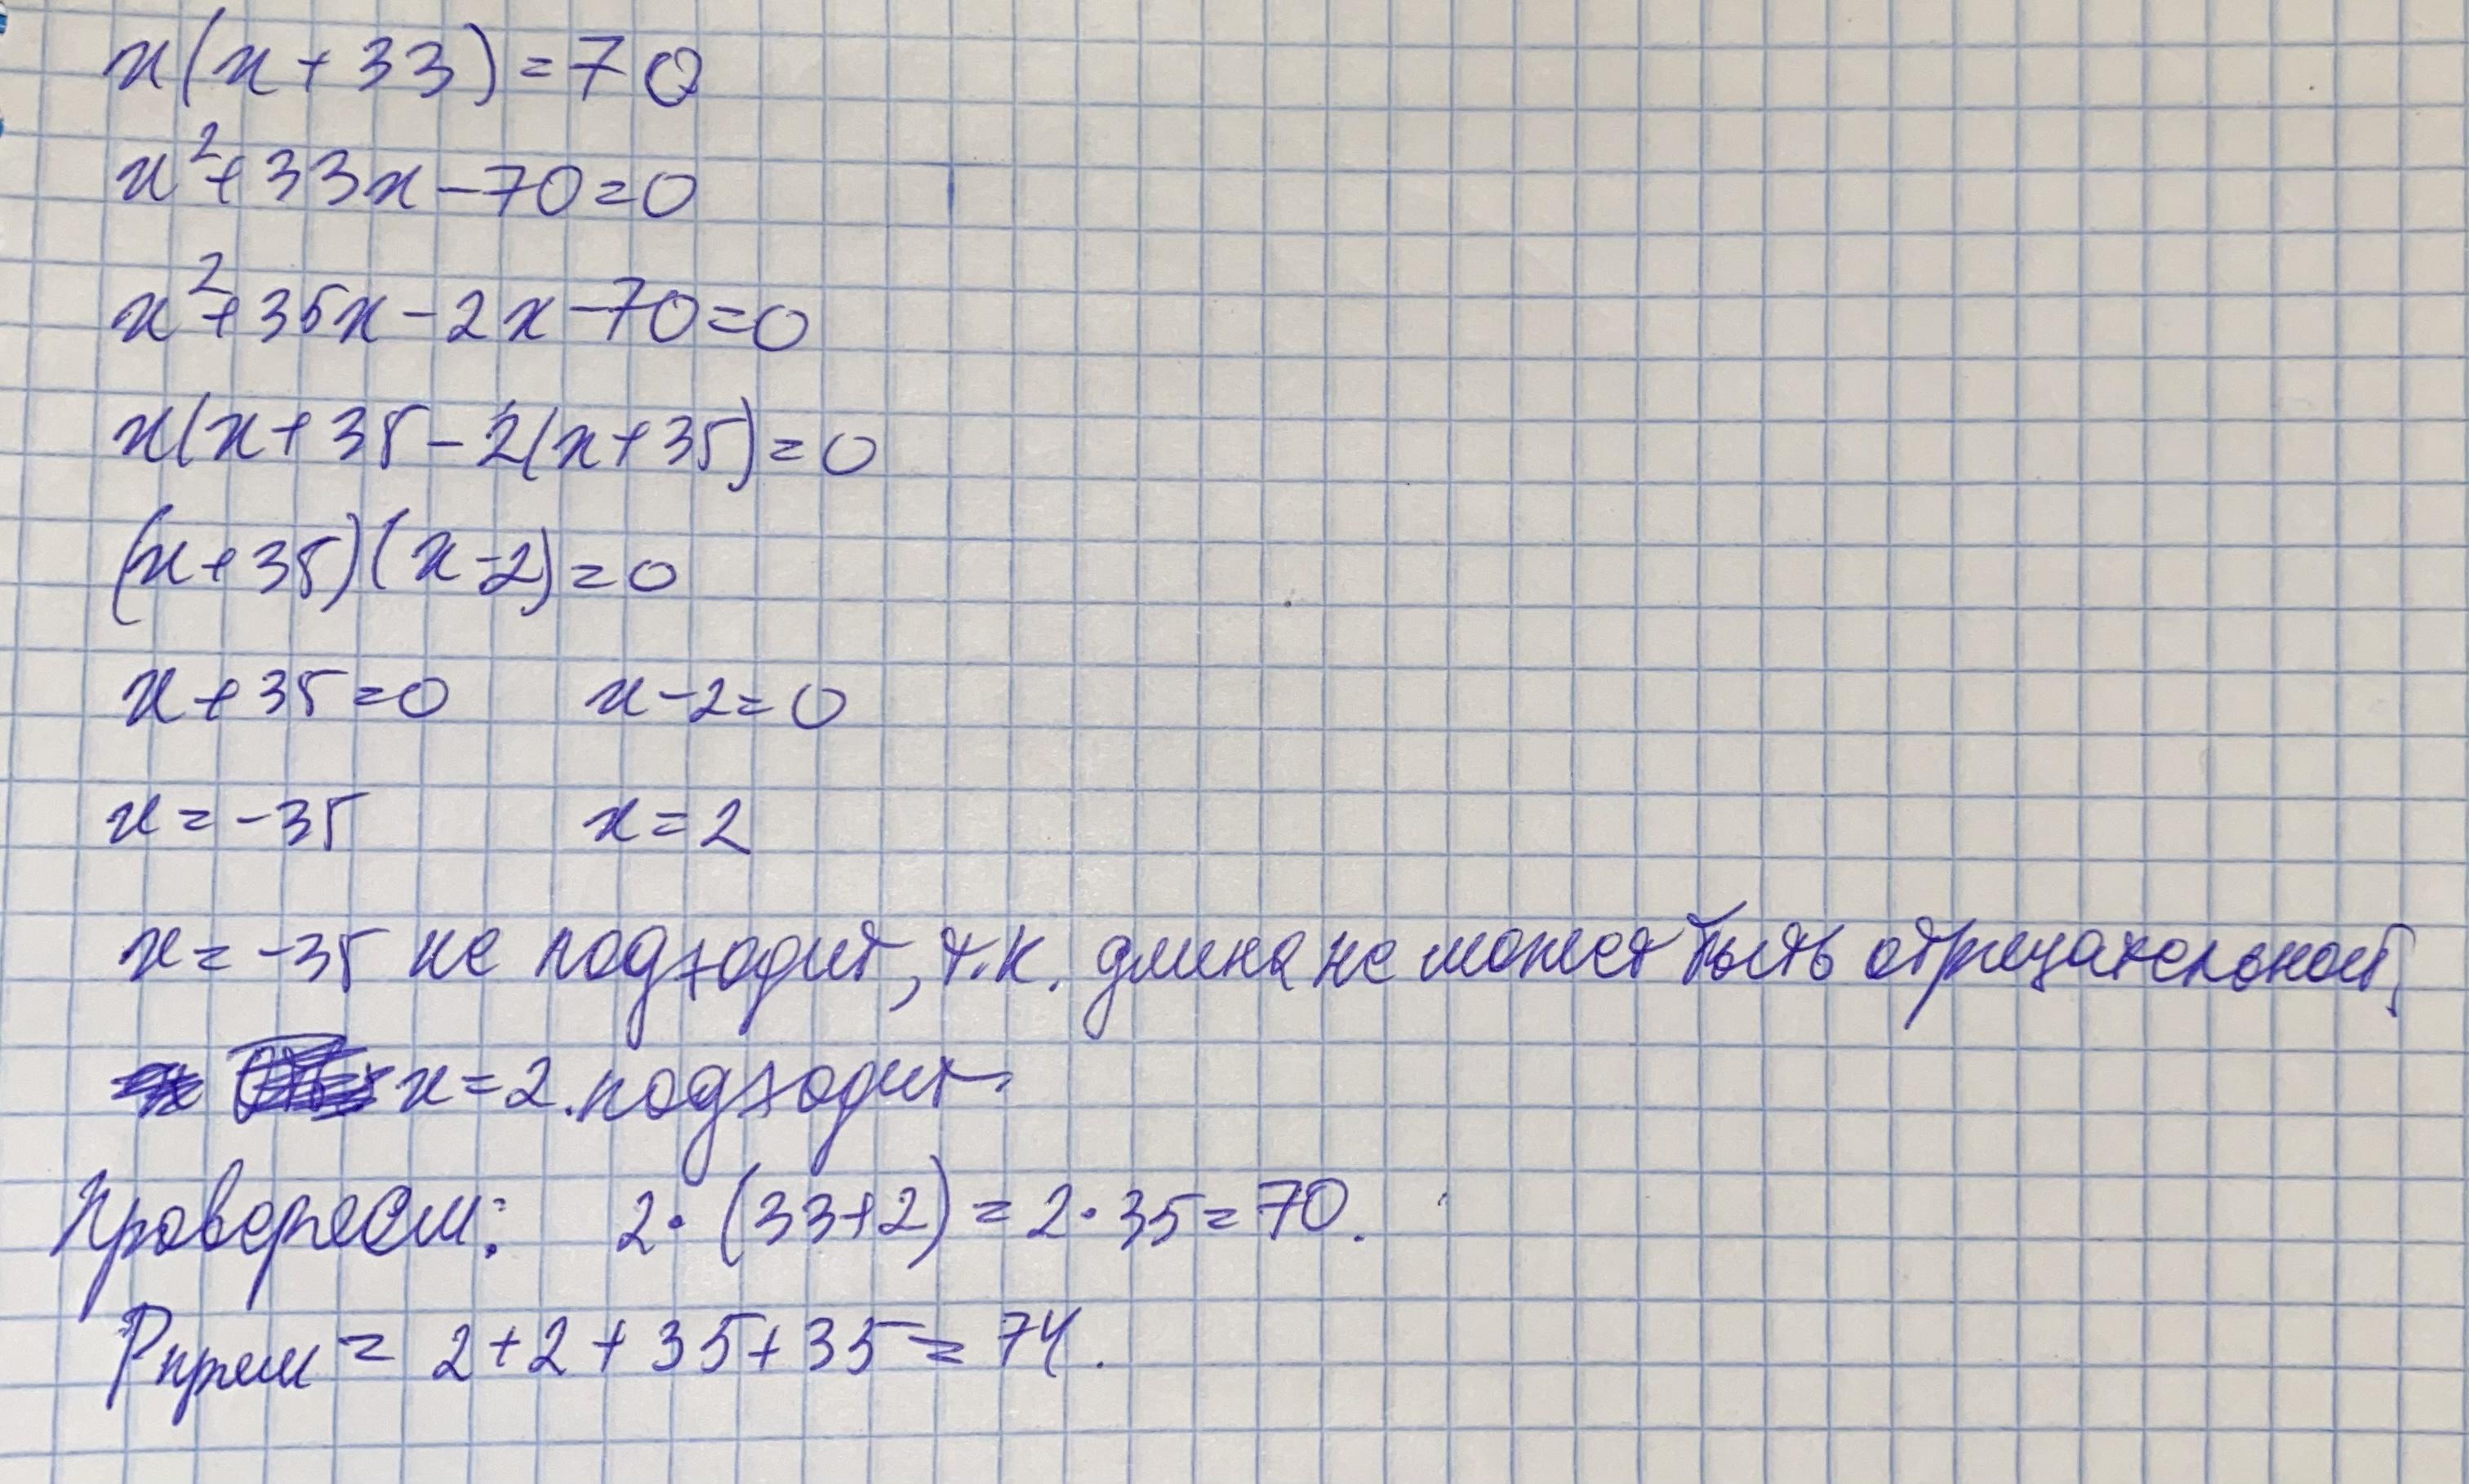 x(x+33)=70
x²+33x-70=0
x²+35x-2x-70=0
x(x+35-2(x+35)=0
(x+35)(x-2)=0
x+35=0 x-2=0
x=-35 x=2
x=-35 не подходит, т.к. длина не может быть отрицательной,
x=2.подходит.
Проверяем: 2·(33+2)=2·35=70.
Pпрям=2+2+35+35=74.